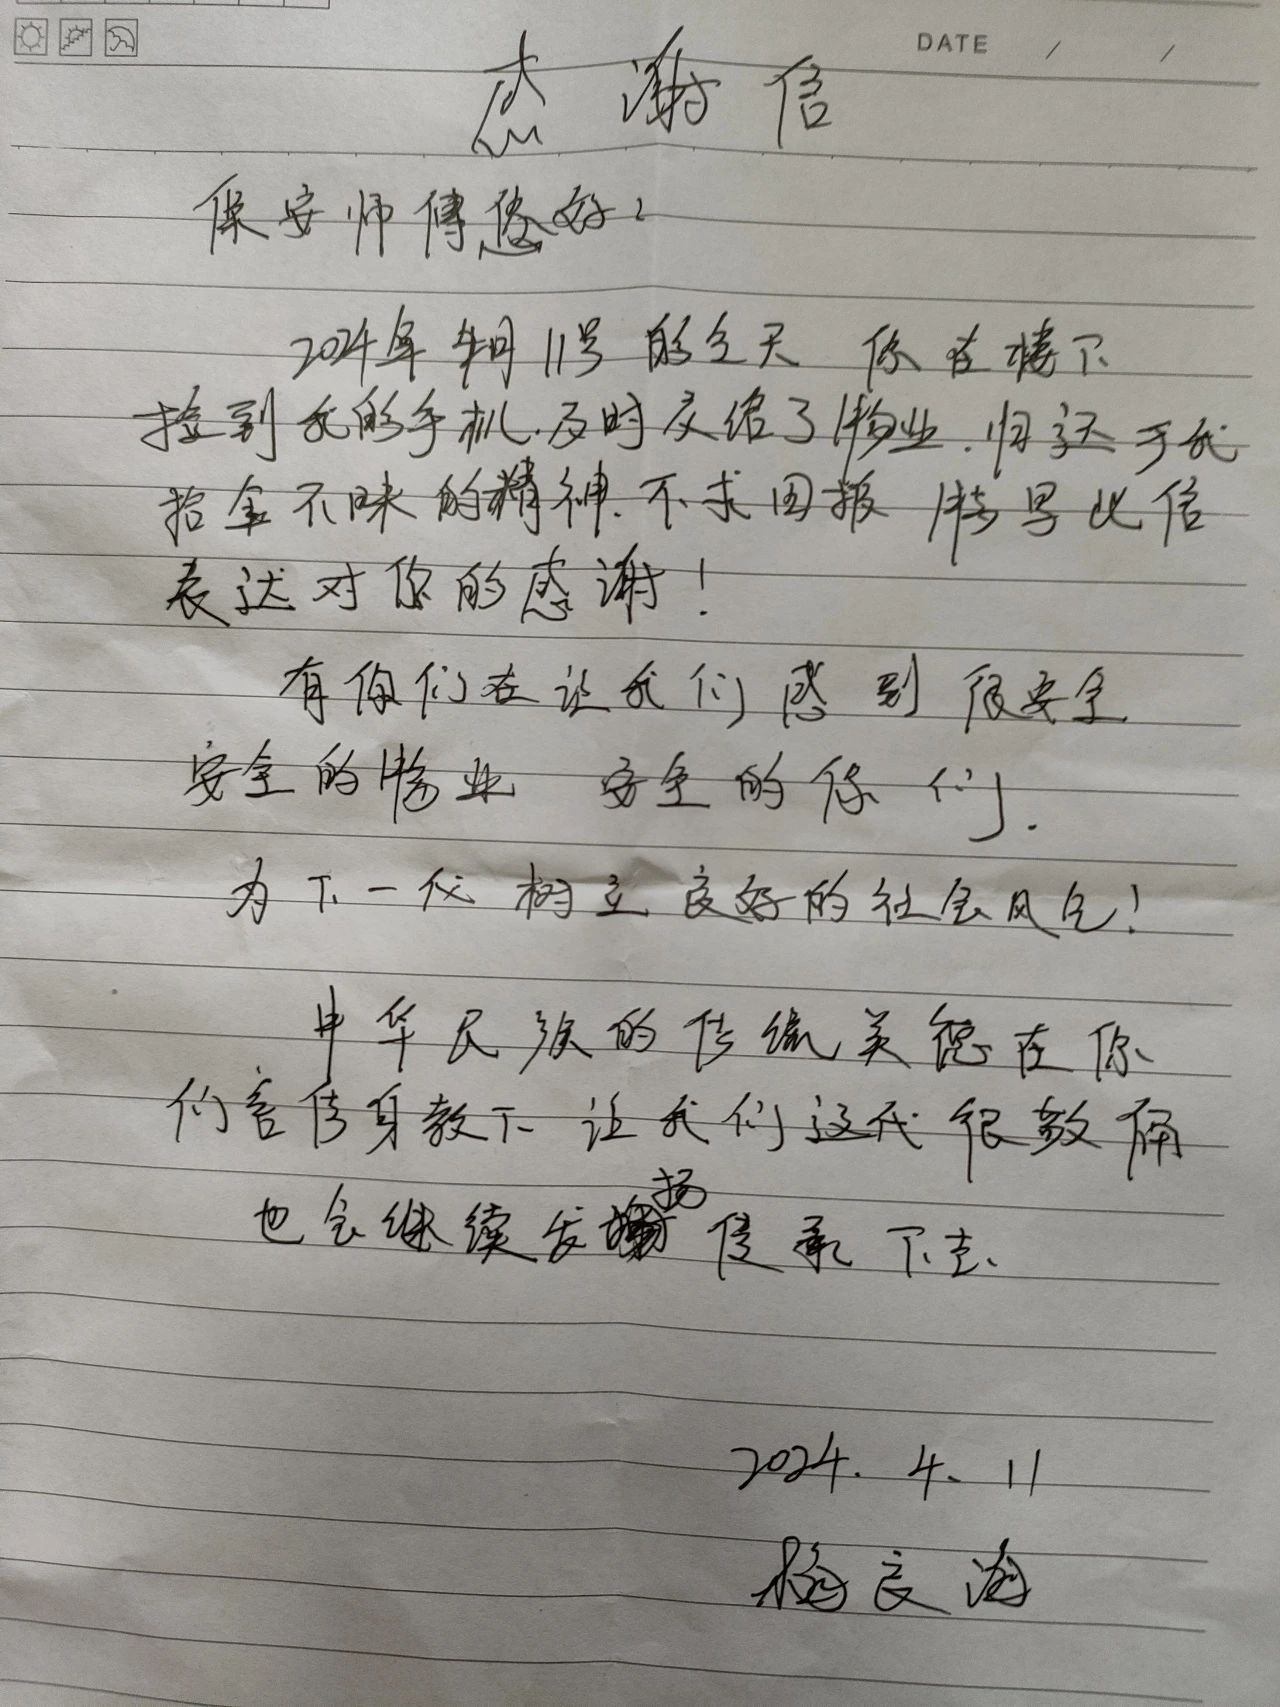 DATE / /
感谢信
保安师傅您好:
2024年4月11号的今天 你在楼下
捡到我的手机.及时交给了物业.归还于我
拾金不昧的精神.不求回报 特写此信
表达对你的感谢!
有你们在让我们感到很安全
安全的物业 安全的你们.
为下一代树立良好的社会风气!
中华民族的传统美德在你
们言传身教下 让我们这代很敬佩
也会继续发扬传承下去、
2024.4.11
梅良海